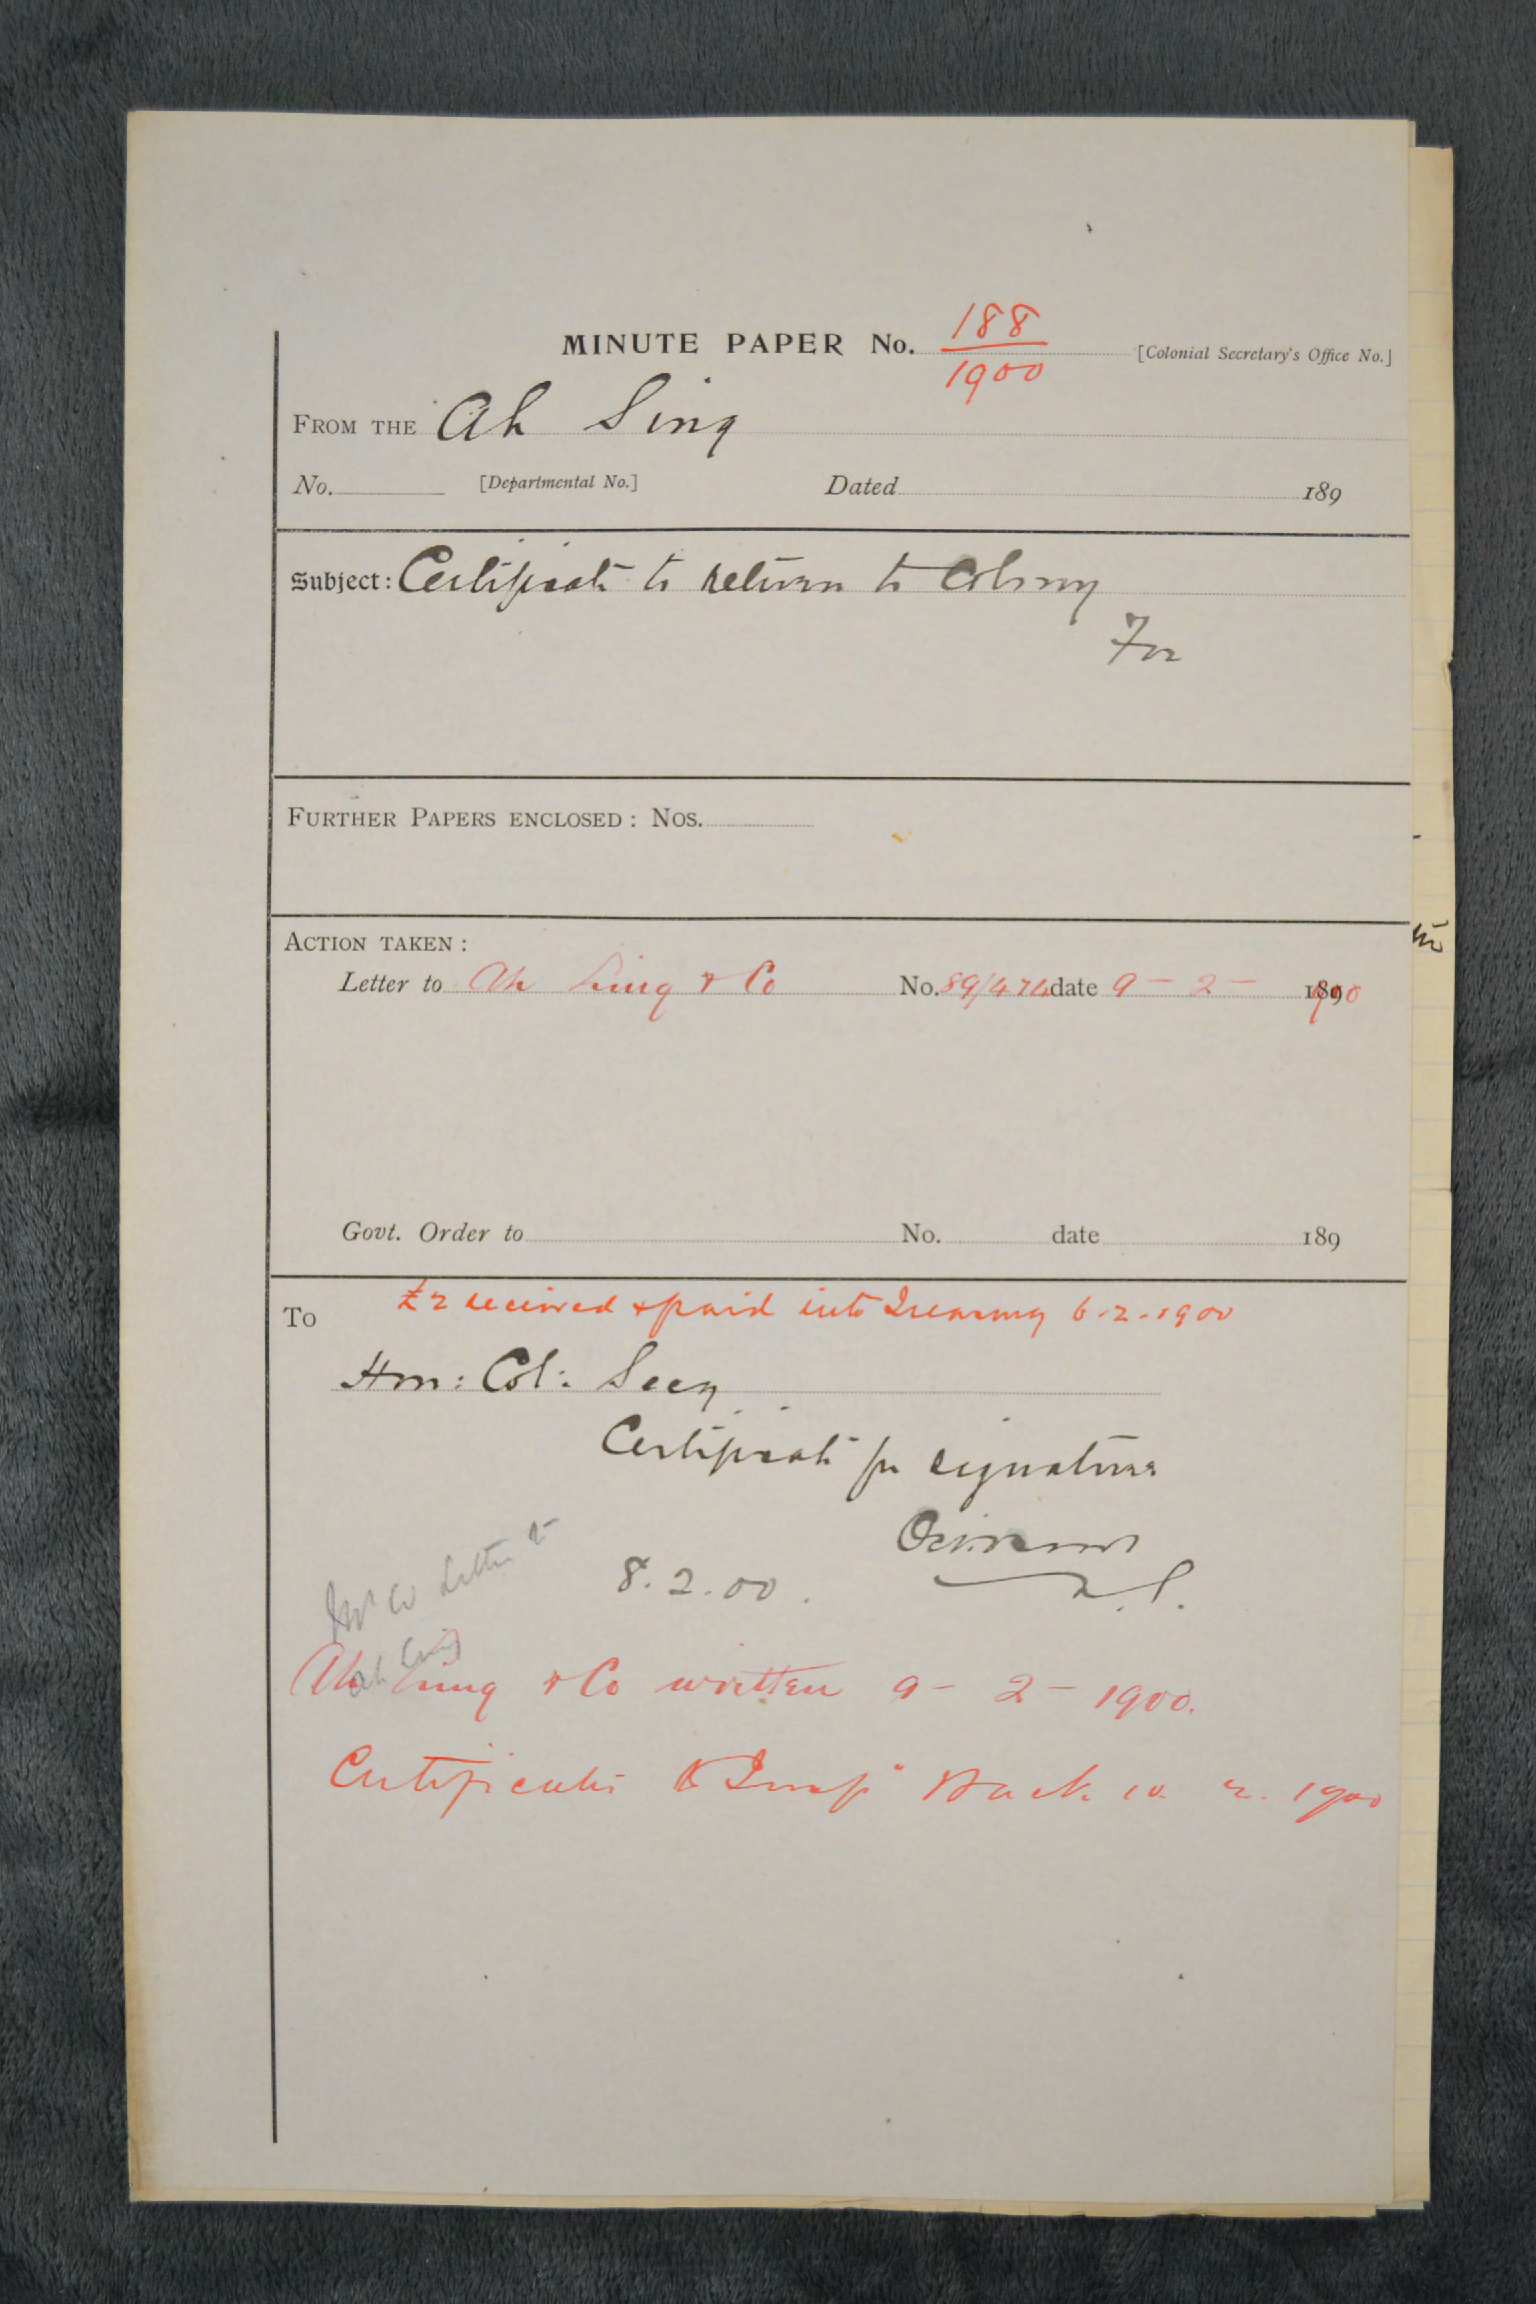 MINUTE PAPER No. 188/1900 [Colonial Secretary's Office No.]
FROM THE Ah Sing
No. [Departmental No.] Dated 189
Subject: Certificate to return to Colony
For
FURTHER PAPERS ENCLOSED: Nos.
ACTION TAKEN:
Letter to Ah Sing & Co No. 89/474 date 9-2-1900
Govt. Order to No. date 189
£2 received & paid into Treasury 6-2-1900
To
Hon: Col: Secy
Certificate for signature
8.2.00.
Letter to
Ah Sing
Ah Sing & Co written 9-2-1900.
Certificate to Insp Back 10.2.1900